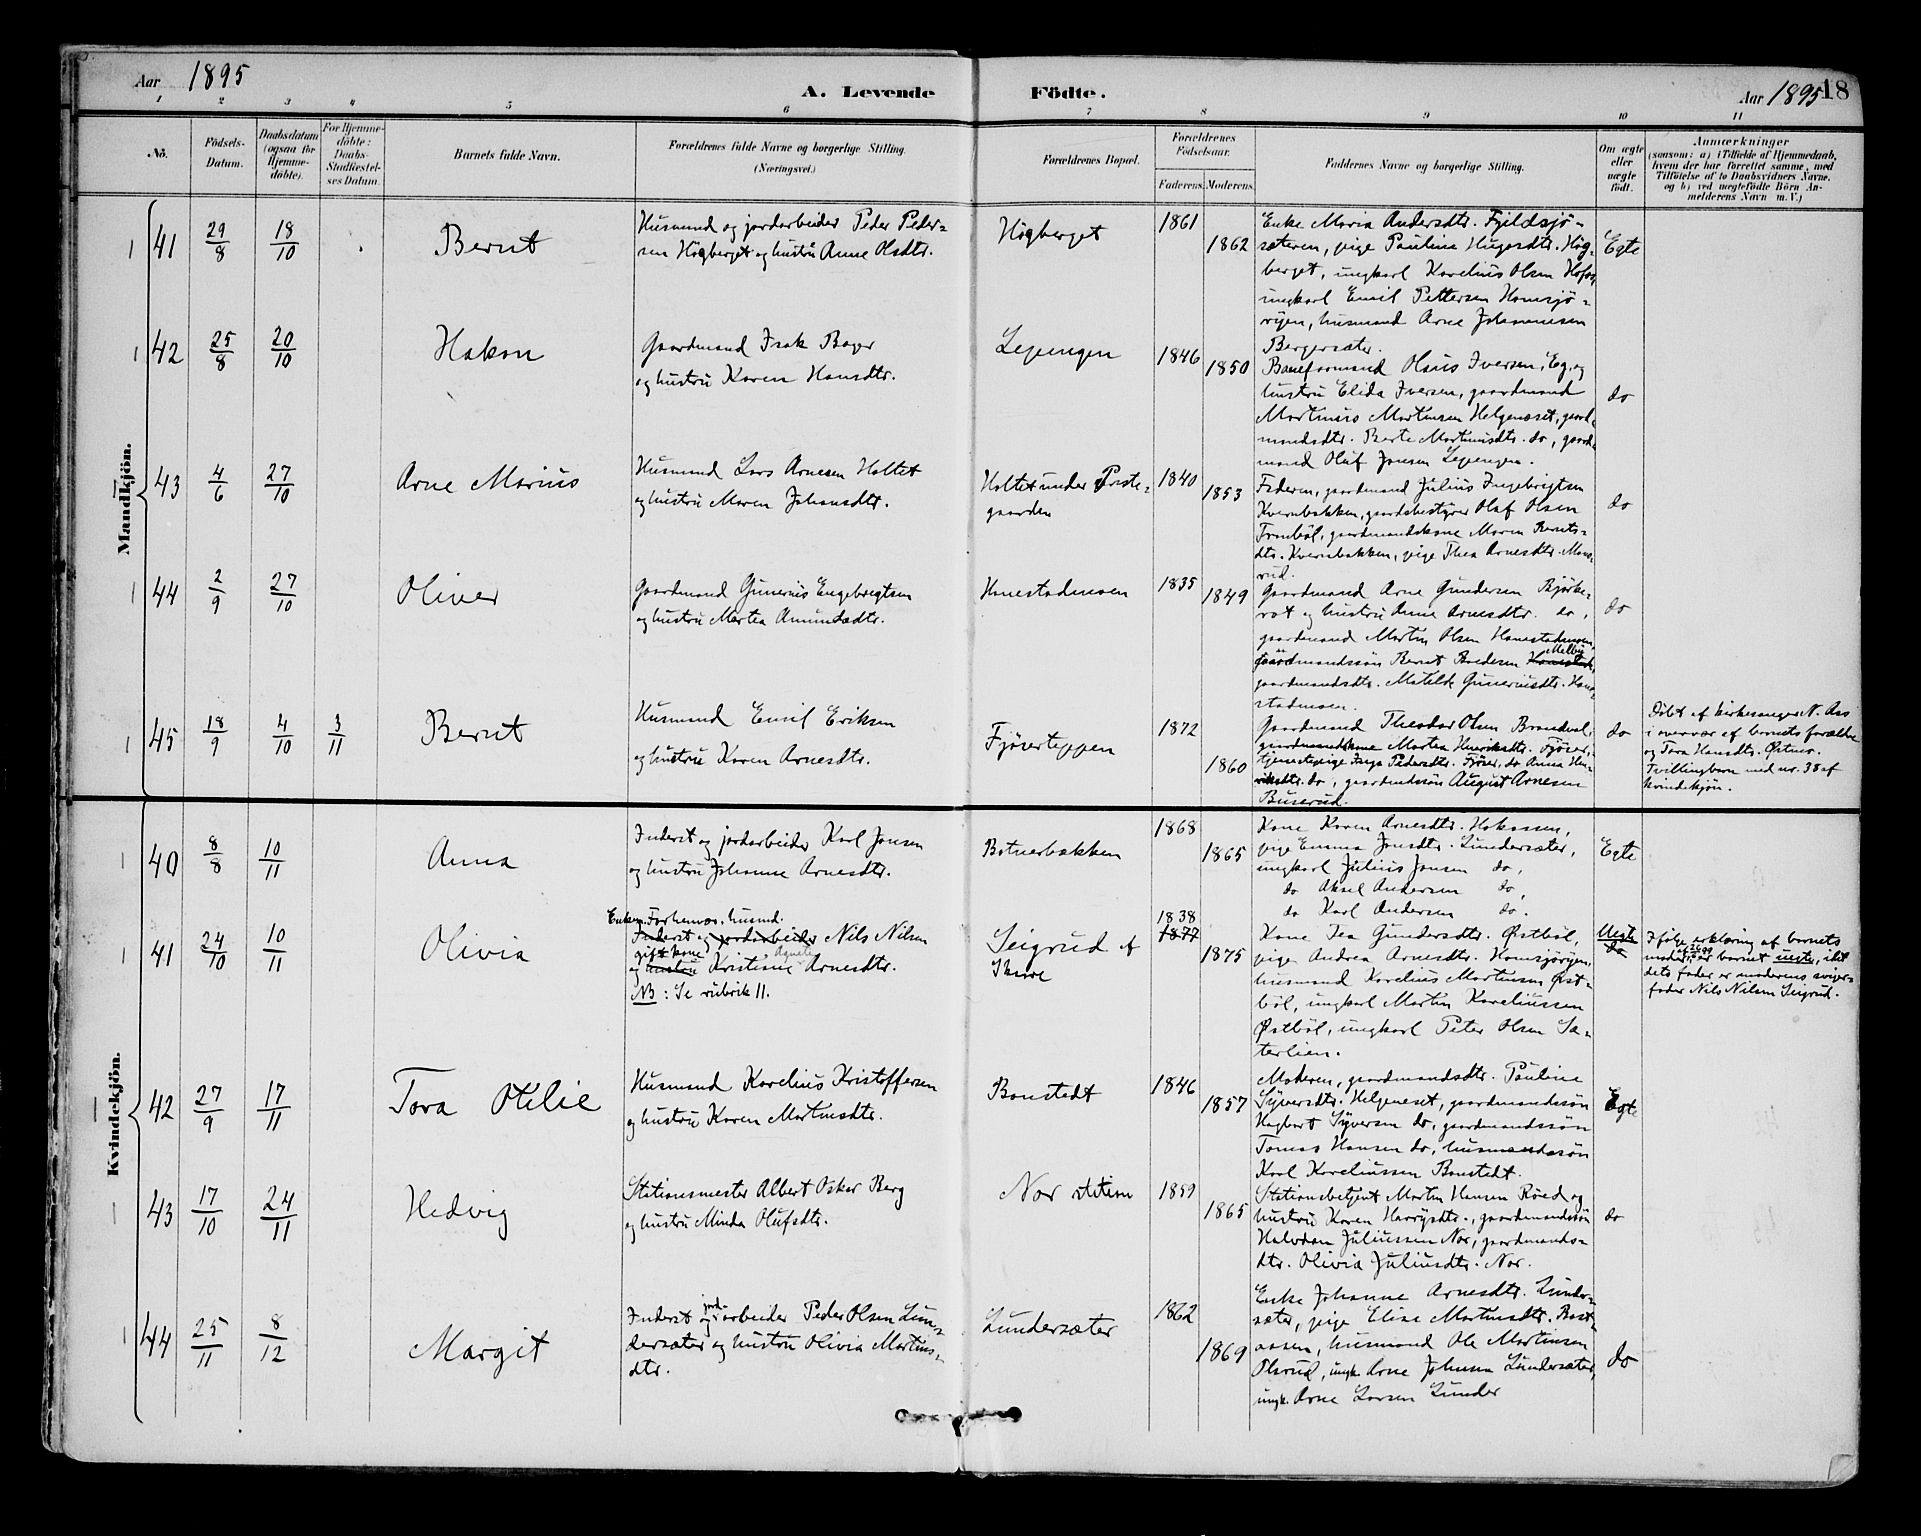 Aar 1895
A. Levende Födte.
Aar 1895 18
1 2 3 4 5 6 7 8 9 10 11
Nö.
Födsels-
Datum.
Daabsdatum
(ogsaa for
Hjemme-
döbte).
For Hjemme-
döbte:
Daabs-
Stadfæstel-
ses Datum.
Barnets fulde Navn.
Forældrenes fulde Navne og borgerlige Stilling.
(Næringsvei.)
Forældrenes Bopæl.
Forældrenes
Födselsaar.
Faderens. Moderens.
Faddernes Navne og borgerlige Stilling.
Om ægte
eller
uægte
födt.
Anmærkninger
(saasom: a) i Tilfælde af Hjemmedaab,
hvem der har forrettet samme, med
Tilföielse af to Daabsvidners Navne,
og b) ved uægtefödte Börn An-
melderens Navn m. V.)
Mandkjön.
41 29/8 18/10 Bernt
Husmand og jordarbeider Peder Peder-
sen Högberget og hustru Anne Olsdtr.
Högberget
1861
1862
Enke Maria Andersdtr. Fjeldsjö-
sæteren, pige Pauline Hugosdtr. Hög-
berget, ungkarl Karelius Olsen Hofos,
ungkarl Emil Pettersen Hamsjö-
ryen, husmand Arne Johannesen
Bergersæter.
Egte
42 25/8 20/10 Hakon
Gaardmand Isak Bager
og hustru Karen Hansdtr.
Lepengen
1846
1850
Baneformand Olaus Iversen, Eg, og
hustru Elida Iversen, gaardmand
Martinus Martinsen Helgeneset, gaard-
mandsdtr. Berte Martinusdtr. do, gaard-
mand Oluf Jansen Lepengen.
do
43 4/6 27/10 Arne Marius
Husmand Lars Arnesen Holtet
og hustru Maren Johansdtr.
Holtet under Preste-
gaarden
1840
1853
Faderen, gaardmand Julius Ingebrigtsen
Kvernbakken, gaardsbestyrer Olaf Olsen
Tromböl, gaardmandskone Maren Bernts-
dtr. Kvernbakken, pige Thea Arnesdtr. Mons-
rud.
do
44 2/9 27/10 Oliver
Gaardmand Gunerius Engebrigtsen
og hustru Martea Amundsdtr.
Hanestadmoen
1835
1849
Gaardmand Arne Gundersen Björke-
rot og hustru Anne Arnesdtr. do,
gaardmand Martin Olsen Hanestadmoen,
gaardmandssön Bernt Bredesen Melby
gaardmandsdtr. Matilde Guneriusdtr. Hane-
stadmoen.
do
45 18/9 4/10 3/11 Bernt
Husmand Emil Eriksen
og hustru Karen Arnesdtr.
Fjöserteppen
1872
1860
Gaardmand Theodor Olsen Brandval,
gaardmandskone Martea Henriksdtr. Fjöser,
tjenestepige Inga Pedersdtr. Fjöser, do Anna Hen-
riksdtr. do, gaardmdssön August Arnesen
Buserud.
do
Döbt af kirkesanger N. Aas
i overvær af barnets forældre
og Tora Hansdtr. Östmo.
Tvillingbarn med nr. 38 af
kvindekjön.
Kvindekjön.
40 8/8 10/11 Anna
Inderst og jordarbeider Karl Jansen
og hustru Johanne Arnesdtr.
Botnerbækken
1868
1865
Kone Karen Arnesdtr. Hokaasen,
pige Emma Jansdtr. Lundersæter,
ungkarl Julius Jansen do,
do Aksel Andersen do,
do Karl Andersen do.
Egte
41 24/10 10/11 Olivia
Enkem. Forhenv. husmd.
Inderst og jordarbeider Nils Nilsen
gift kone Agnete
og hustru Kristine Arnesdtr.
NB: Se rubrik 11.
Seigrud af
Skare
1838
1877
1875
Kone Tea Gundersdtr. Östböl,
pige Andrea Arnesdtr. Hamsjöryen,
husmand Karelius Martinsen Öst-
böl, ungkarl Martin Kareliussen
Östböl, ungkarl Peter Olsen Sæ-
terlien.
Uegte
do
Ifölge erklæring af barnets
moder, er barnet uegte, idet
dets fader er moderens sviger-
fader Nils Nilsen Seigrud.
42 27/9 17/11 Tora Otelie
Husmand Karelius Kristoffersen
og hustru Karen Martinsdtr.
Banstedt
1846
1857
Moderen, gaardmandsdtr. Pauline
Syversdtr. Helgeneset, gaardmandssön
Hagbart Syversen do, gaardmandssön
Tomas Hansen do, husmandssön
Karl Kareliussen Banstedt.
Egte
43 17/10 24/11 Hedvig
Stationsmester Albert Oskar Berg
og hustru Minda Olufsdtr.
Nor station
1859
1865
Stationsbetjent Martin Hansen Röed og
hustru Karen Harrysdtr., gaardmandssön
Halvdan Juliussen Nor, gaardmands-
dtr. Olivia Juliusdtr. Nor.
do
44 25/11 8/12 Margit
Inderst og jord-arbeider Peder Olsen Lun-
dersæter og hustru Olivia Martins-
dtr.
Lundersæter
1862
1869
Enke Johanne Arnesdtr. Lunder-
sæter, pige Elise Martinsdtr. Bast-
aasen, husmand Ole Martinsen
Olsrud, ungk. Arne Johnsen Lundersæter,
ungk. Arne Larsen Lunder
do